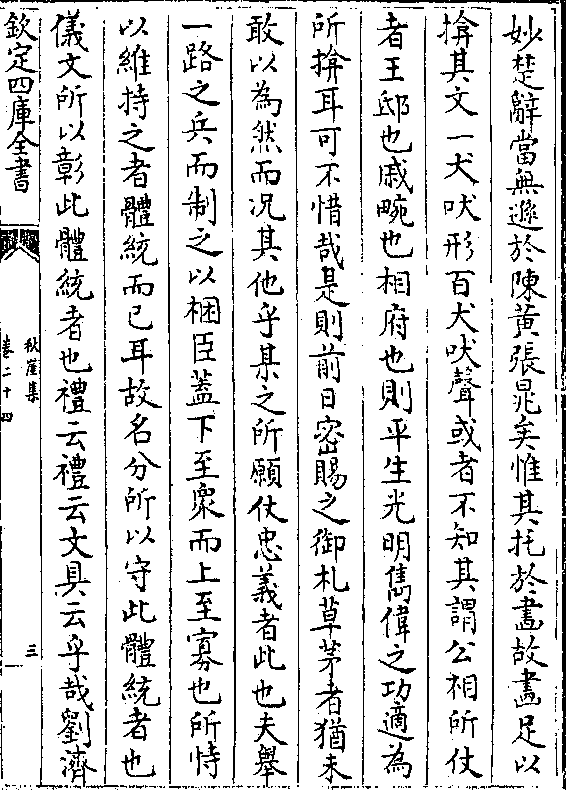 妙楚辭當無遜於陳黃張晁矣惟其托於畫故畫足以
揜其文一犬吠形百犬吠聲或者不知其謂公相所仗
者王邸也戚畹也相府也則平生光明雋偉之功適為
所揜耳可不惜哉是則前日密賜之御札草茅者猶未
敢以為然而况其他乎某之所願仗忠義者此也夫舉
一路之兵而制之以梱臣蓋下至衆而上至寡也所恃
以維持之者體統而已耳故名分所以守此體統者也
儀文所以彰此體統者也禮云禮云文具云乎哉劉濟
欽定四庫全書
秋崖集
卷二十四
三